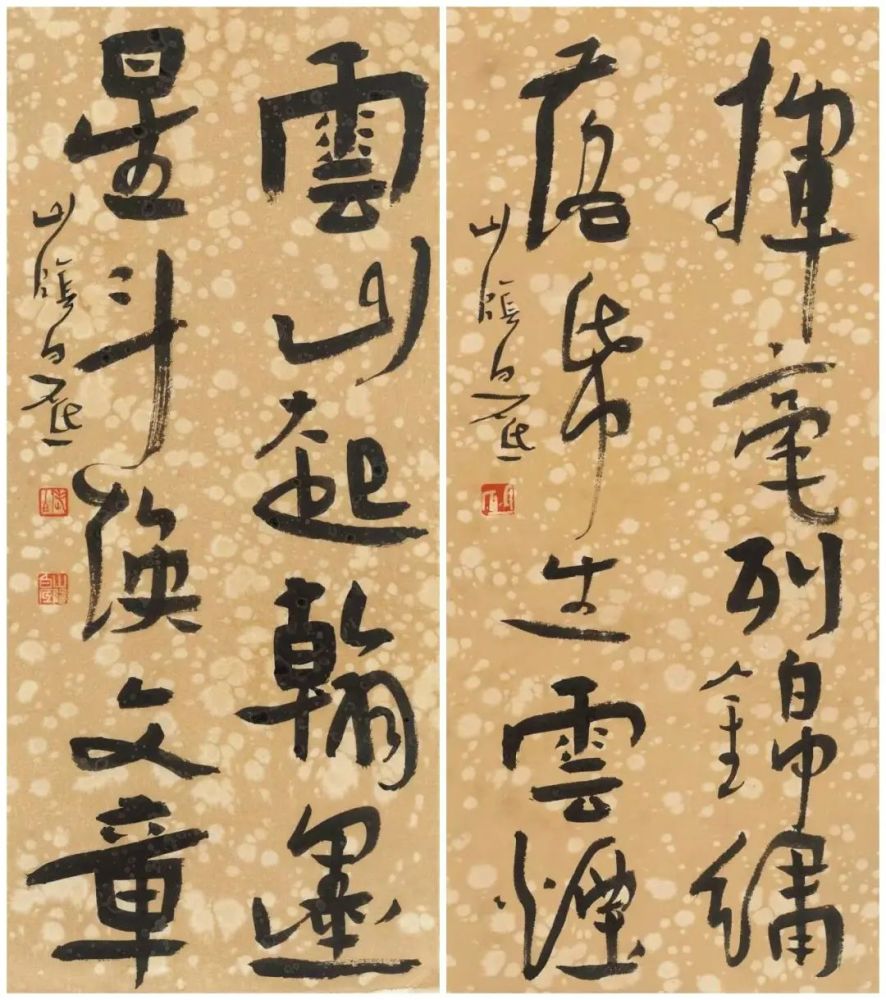 揮毫列錦繡
落帋生雲煙
山陰白砥
雲山起翰墨
星斗煥文章
山陰白砥